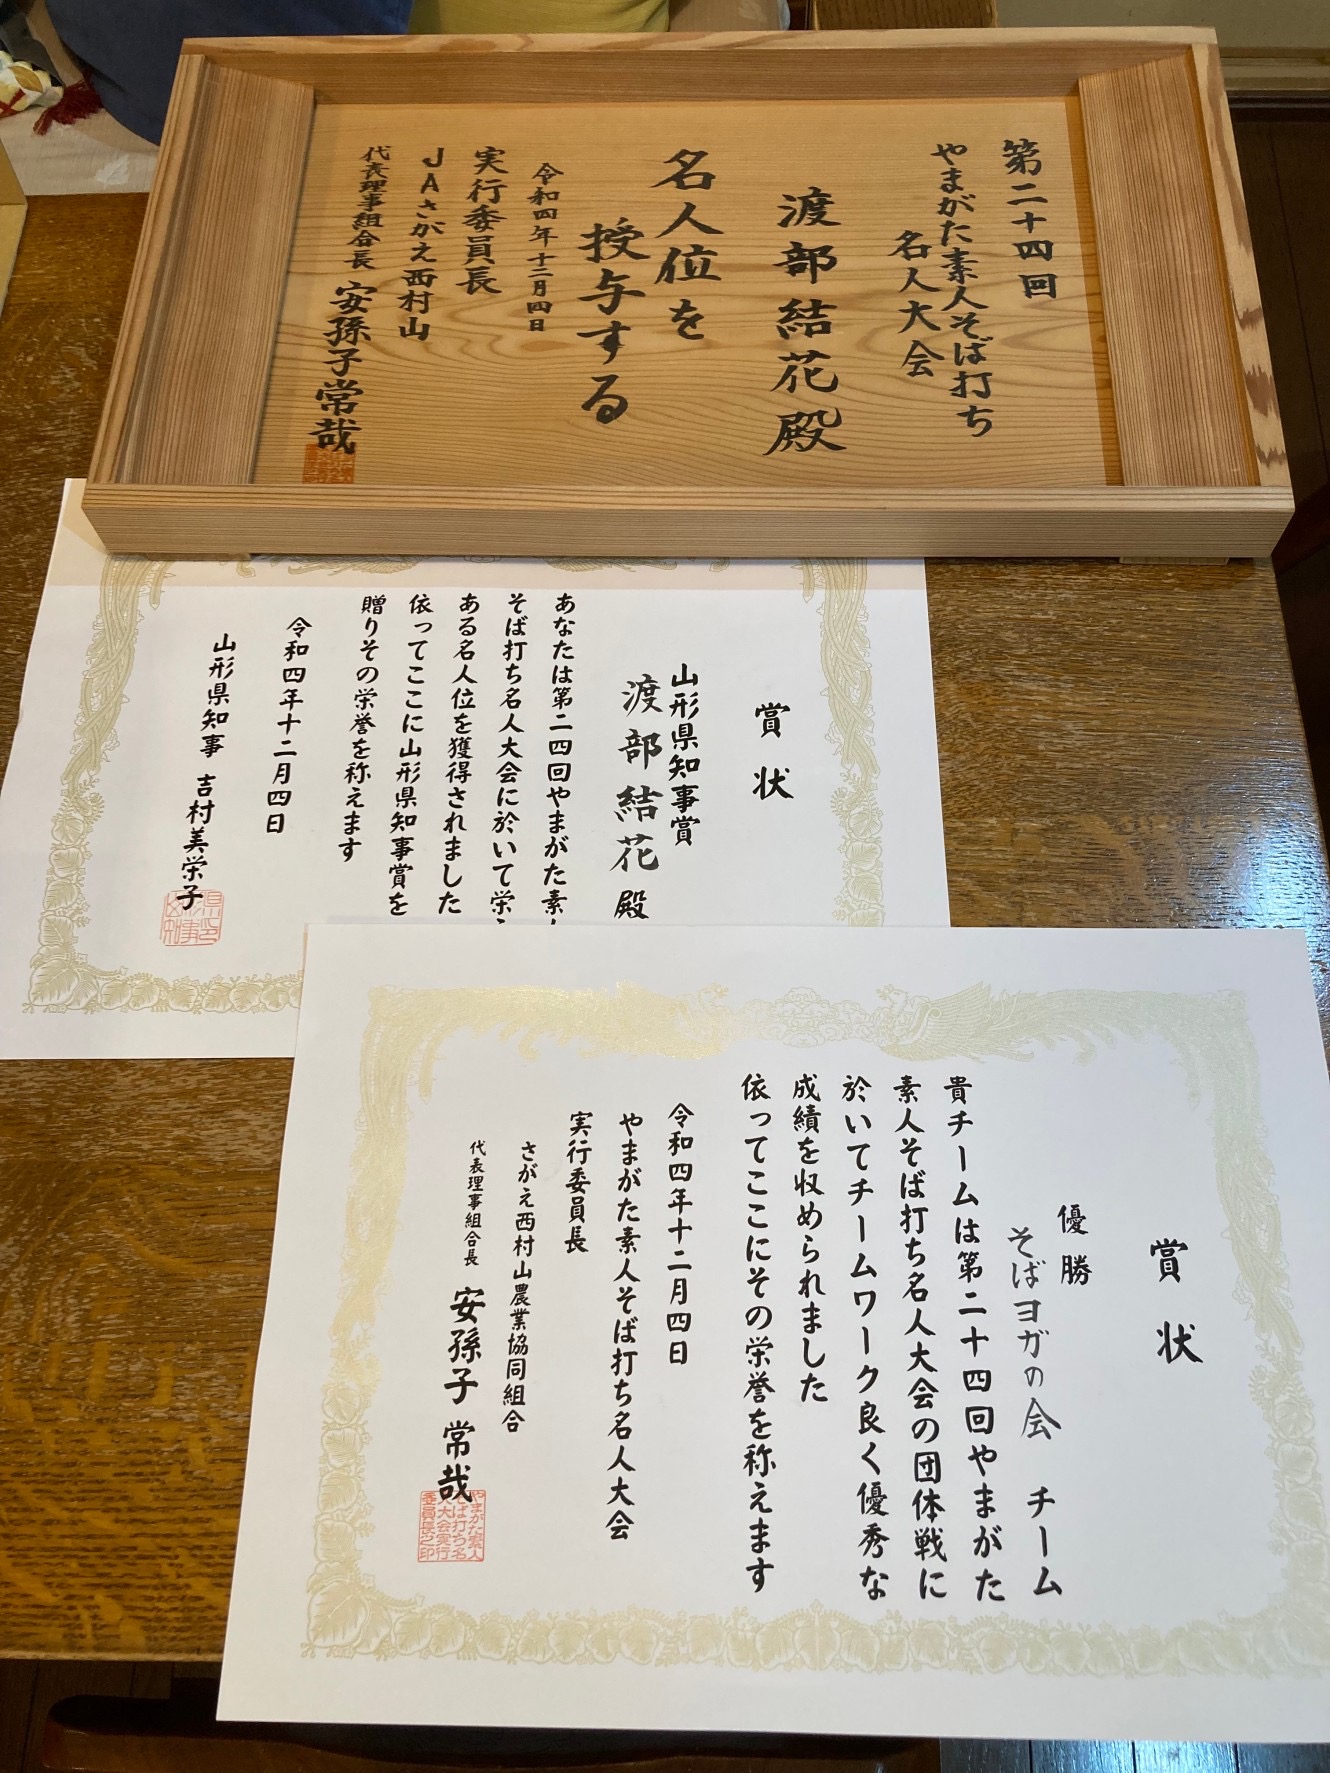 第二十四回
やまがた素人そば打ち
名人大会
渡部結花殿
名人位を
授与する
令和四年十二月四日
実行委員長
JAさがえ西村山
代表理事組合長 安孫子常哉
賞状
山形県知事賞
渡部結花殿
あなたは第二四回やまがた素
そば打ち名人大会に於いて栄
ある名人位を獲得されました
依ってここに山形県知事賞を
贈りその栄誉を称えます
令和四年十二月四日
山形県知事 吉村美栄子
賞状
優勝
そばヨガの会 チーム
貴チームは第二十四回やまがた
素人そば打ち名人大会の団体戦に
於いてチームワーク良く優秀な
成績を収められました
依ってここにその栄誉を称えます
令和四年十二月四日
やまがた素人そば打ち名人大会
実行委員長
さがえ西村山農業協同組合
代表理事組合長 安孫子常哉
やまがた素人
そば打ち名
人大会実行
委員長之印